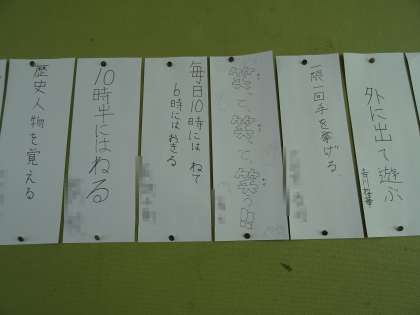 外に出て遊ぶ
一限一回手を挙げる
笑って笑って、笑う
毎日10時には ねて
6時にはおきる
10時半にはねる
歴史人物を覚える